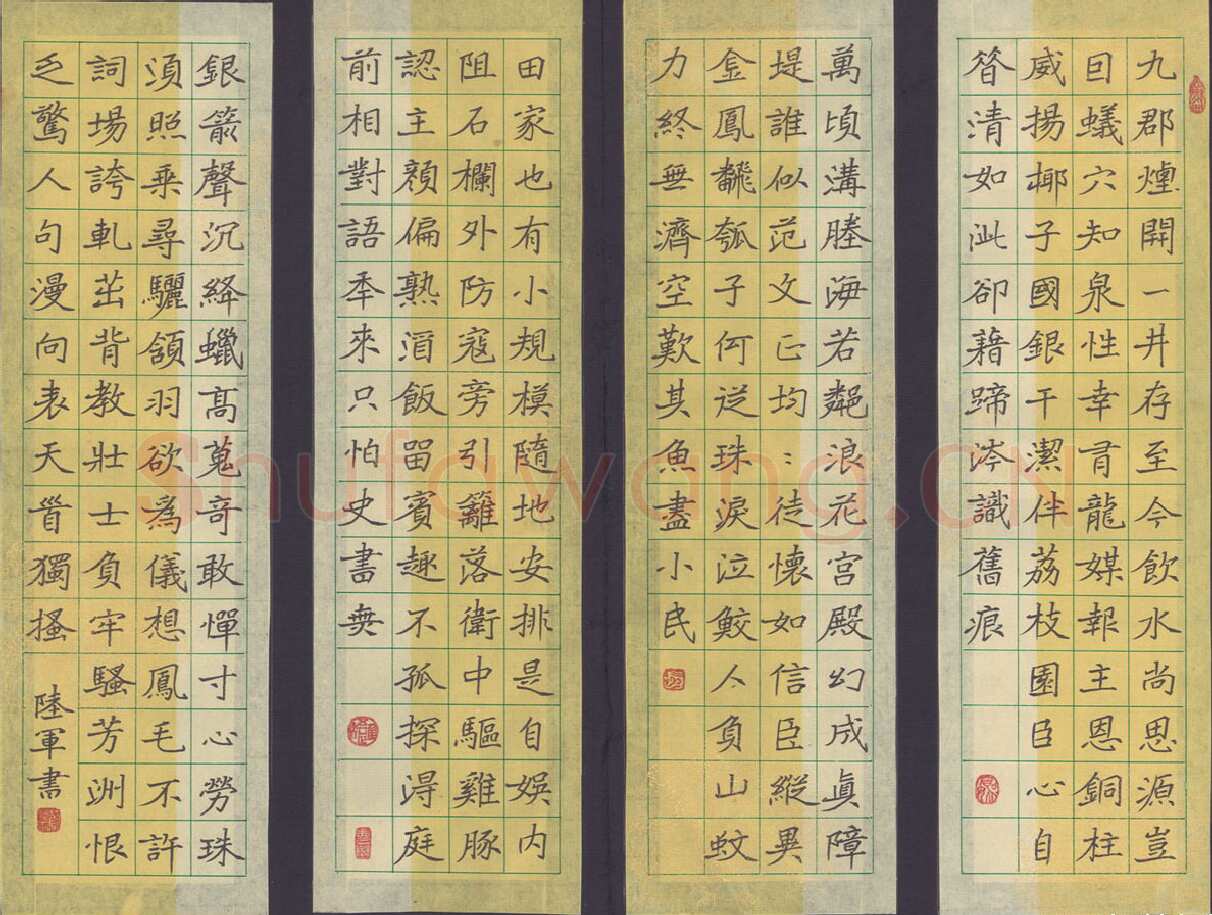 九郡煙開一井存至今飲水尚思源豈
囙蟻穴知泉性幸有龍媒報主恩銅柱
威揚椰子國銀干潔伴荔枝園臣心自
清如泚卻藉蹄涔識舊痕
萬頃溝塍海若浪花宮殿幻成眞障
堤誰似范文正均〻徒懷如信臣縱異
金鳳飜瓠子何從珠淚泣鮫人負山蚊
力終無濟空歎其魚盡小民
田家也有小規模隨地安排是自娛內
阻石欄外防寇旁引籬落衛中驅雞豚
認主顏偏熟酒飯留賓趣不孤探得庭
前相對語秊來只怕史書無
銀箭聲沉絳蠟高蒐奇敢憚寸心勞珠
須照乘尋驪頷羽欲為儀想鳳毛不許
詞場誇軋茁背教壯士負牢騷芳洲恨
乏驚人句漫向表天首獨搔
陸軍書
Shufawang.CN